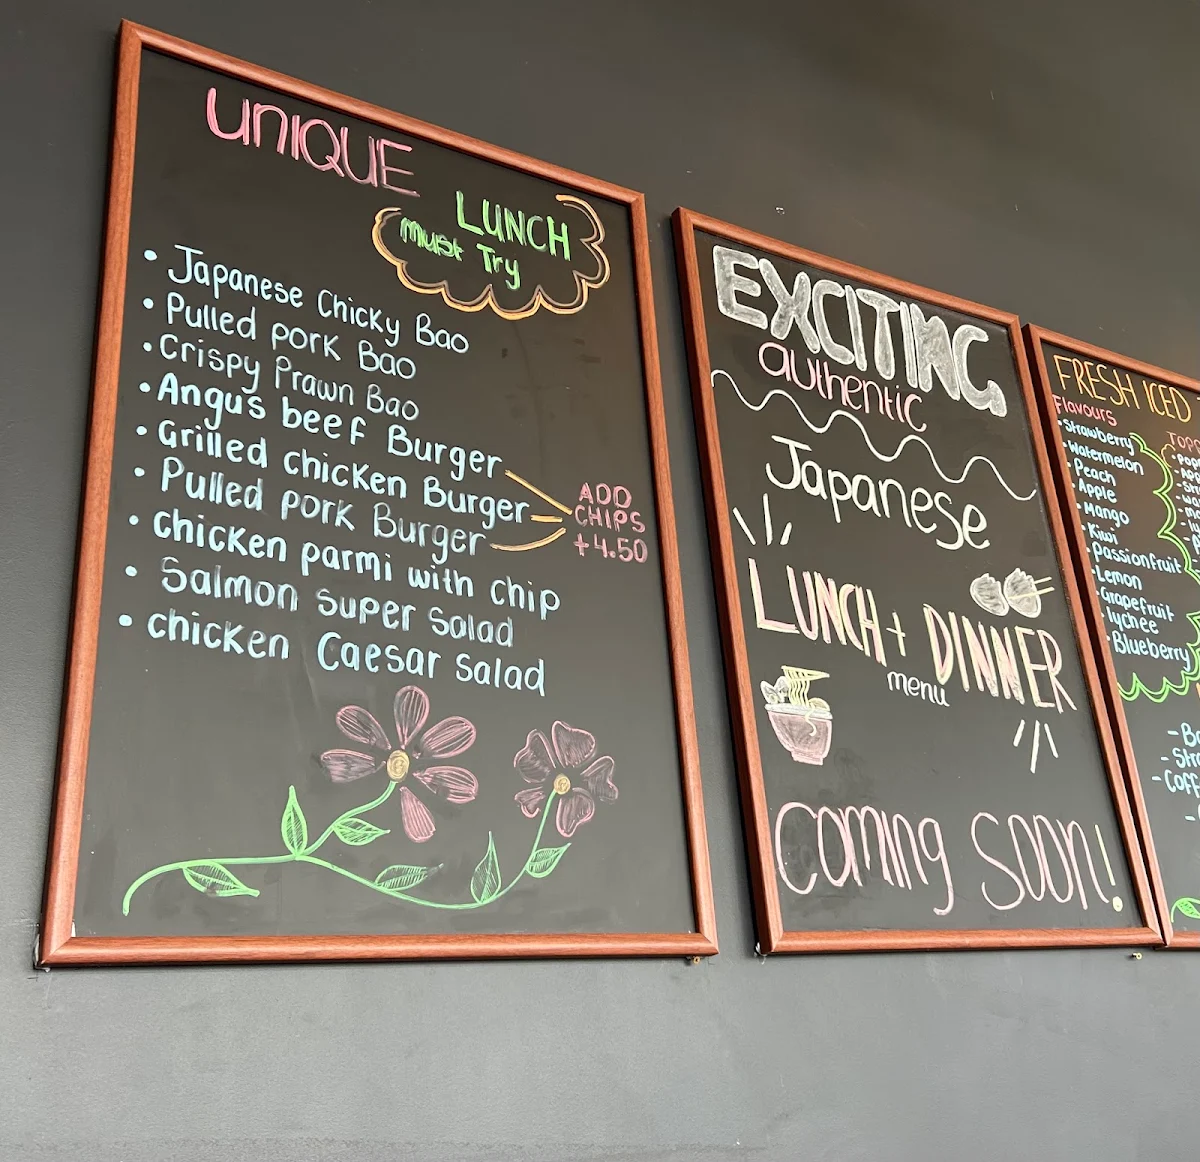 UNIQUE
LUNCH
Must Try
• Japanese Chicky Bao
• Pulled pork Bao
• Crispy Prawn Bao
• Angus beef Burger
• Grilled chicken Burger
• Pulled pork Burger
ADD
CHIPS
+4.50
• chicken parmi with chip
• Salmon super Salad
• chicken Caesar salad
EXCITING
authentic
Japanese
LUNCH + DINNER
menu
coming soon!
FRESH ICED
Flavours
• Strawberry
• Watermelon
• Peach
• Apple
• Mango
• Kiwi
• Passionfruit
• Lemon
• Grapefruit
• lychee
• Blueberry